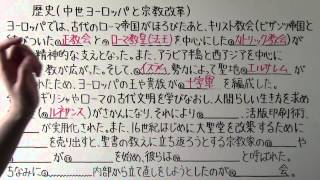 歴史(中世ヨーロッパと宗教改革)
ヨーロッパでは、古代のローマ帝国がほろびたあと、キリスト教会(ビザンツ帝国と
ついた@正教会と@ローマ教皇(法王)を中心にした@カトリック教会)が
精神的な支えとなった。また、アラビア半島と西アジアを中心に
た。そして、@イスラム勢力によって聖地@エルサレムが
れたため、ヨーロッパの王や貴族が@十字軍を編成した。
ギリシャやローマの古代文明を学びなおし、人間らしい生き方を求め
@ルネサンスがさかんになり、それにより@ 、活版印刷術、
@ が実用化された。また、16世紀はじめに大聖堂を改築するために
@ を売り出すと、聖書の教えに立ち返ろうとする宗教家の@ や
@ が@ を始め、彼らは@ と呼ばれた。
ちなみに@ 内部から立て直しをしようとしたのが@ 会。